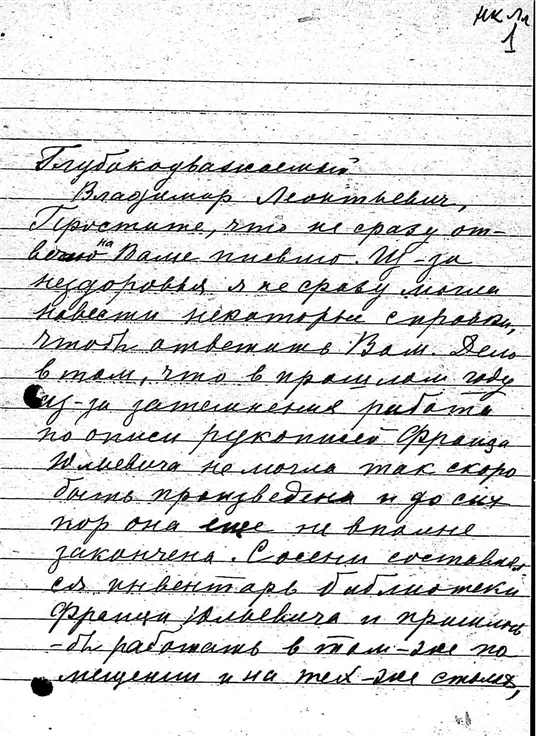 1
Глубокоуважаемый
Владимир Леонтьевич,
Простите, что не сразу от-
вечаю на Ваше письмо. Из-за
нездоровья я не сразу могла
навести некоторые справки,
чтобы ответить Вам. Дело
в том, что в прошлом году
из-за затемнения работа
по описи рукописей Франца
Юльевича не могла так скоро
быть произведена и до сих
пор она еще не вполне
закончена. С осени составлял
ся инвентарь библиотеки
Франца Юльевича и пришлось
-бы работать в том-же по
мещении и на тех-же столах,